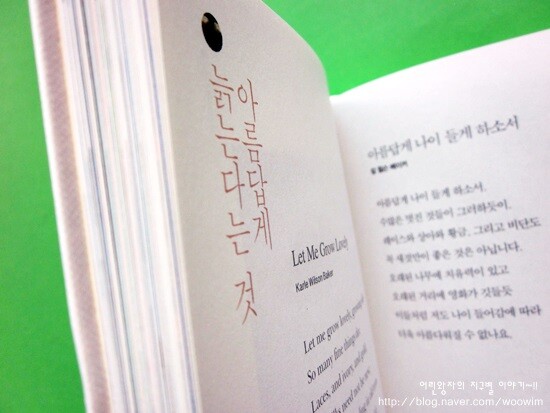 아름답게
늙는다는 것
Let Me Grow Lovely
Karle Wilson Baker
Let me grow lovely, growing
So many fine things do
Laces, and ivory, and gold
need not be new
아름답게 나이 들게 하소서
칼 윌슨 베이커
아름답게 나이 들게 하소서.
수많은 멋진 것들이 그러하듯이.
레이스와 상아와 황금, 그리고 비단도
꼭 새것만이 좋은 것은 아닙니다.
오래된 나무에 치유력이 있고
오래된 거리에 영화가 깃들듯
이들처럼 저도 나이 들어감에 따라
더욱 아름다워질 수 없나요.
어린왕자의 지구별 이야기~!!
http://blog.naver.com/woowim